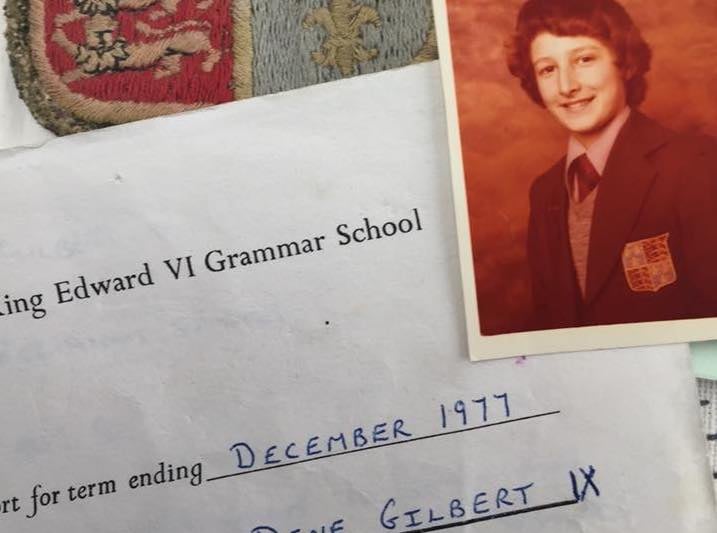 ing Edward VI Grammar School
rt for term ending DECEMBER 1977
GILBERT IX